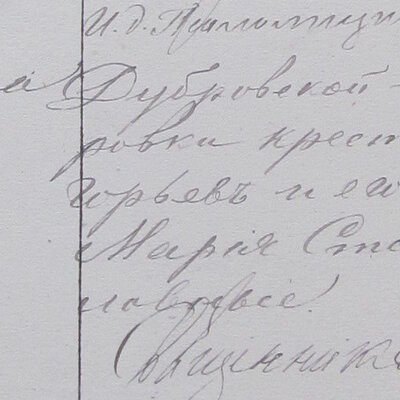 И. д. Псаломщик
а Дубровской
ровки крест
горьевъ и его
Марія Ст
Священник